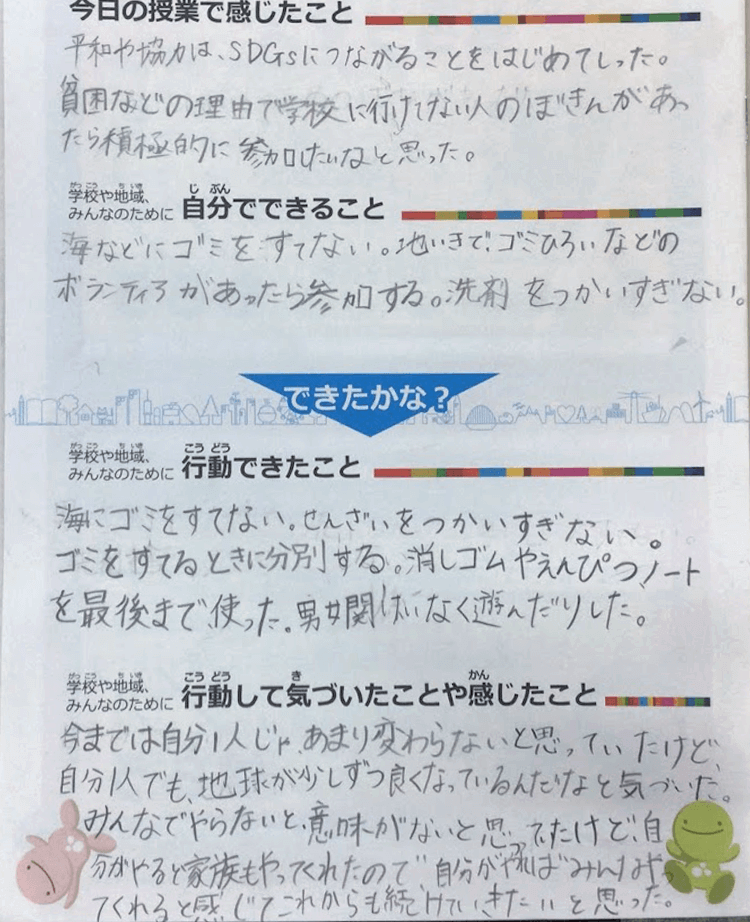 今日の授業で感じたこと
平和や協力は、SDGsにつながることをはじめてしった。
貧困などの理由で学校に行けてない人のぼきんがあっ
たら積極的に参加したいなと思った。
学校や地域、みんなのために 自分でできること
海などにゴミをすてない。地いきで、ゴミひろいなどの
ボランティアがあったら参加する。洗剤をつかいすぎない。
できたかな?
学校や地域、みんなのために 行動できたこと
海にゴミをすてない。せんざいをつかいすぎない。
ゴミをすてるときに分別する。消しゴムやえんぴつノート
を最後まで使った。男女関けいなく遊んだりした。
学校や地域、みんなのために 行動して気づいたことや感じたこと
今までは自分1人じゃ、あまり変わらないと思っていたけど、
自分1人でも、地球が少しずつ良くなっているんだなと気づいた。
みんなでやらないと、意味がないと思ってたけど、自
分がやると家族もやってくれたので自分がやればみんなやっ
てくれると感じてこれからも続けていきたいと思った。